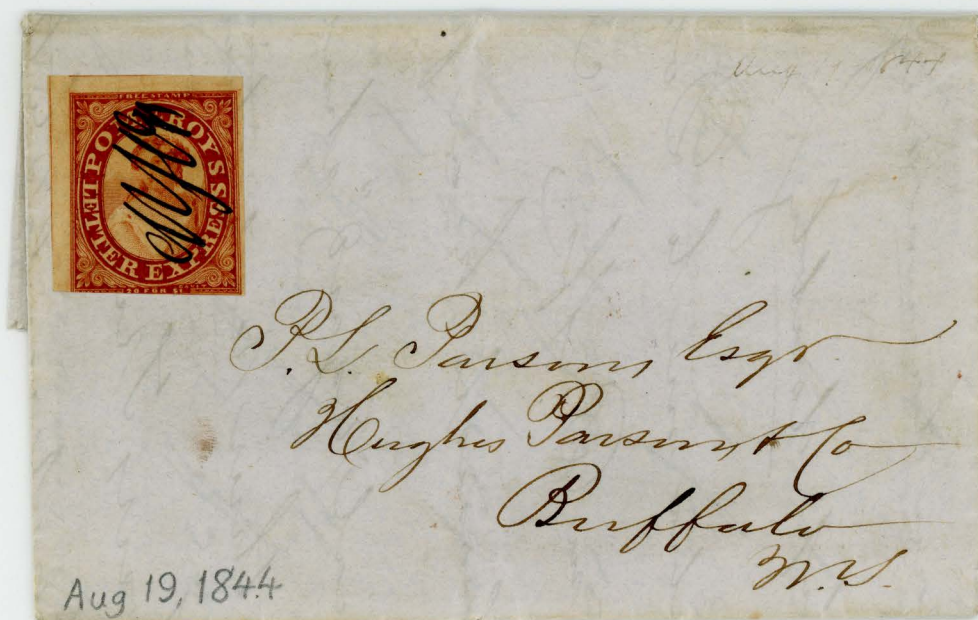 Aug 1844
FREE STAMP
POMEROY'S
LETTER EXPRESS
20 FOR $1
P. L. Parsons, Esqr
Hughes Parsons & Co
Buffalo
N.Y.
Aug 19, 1844